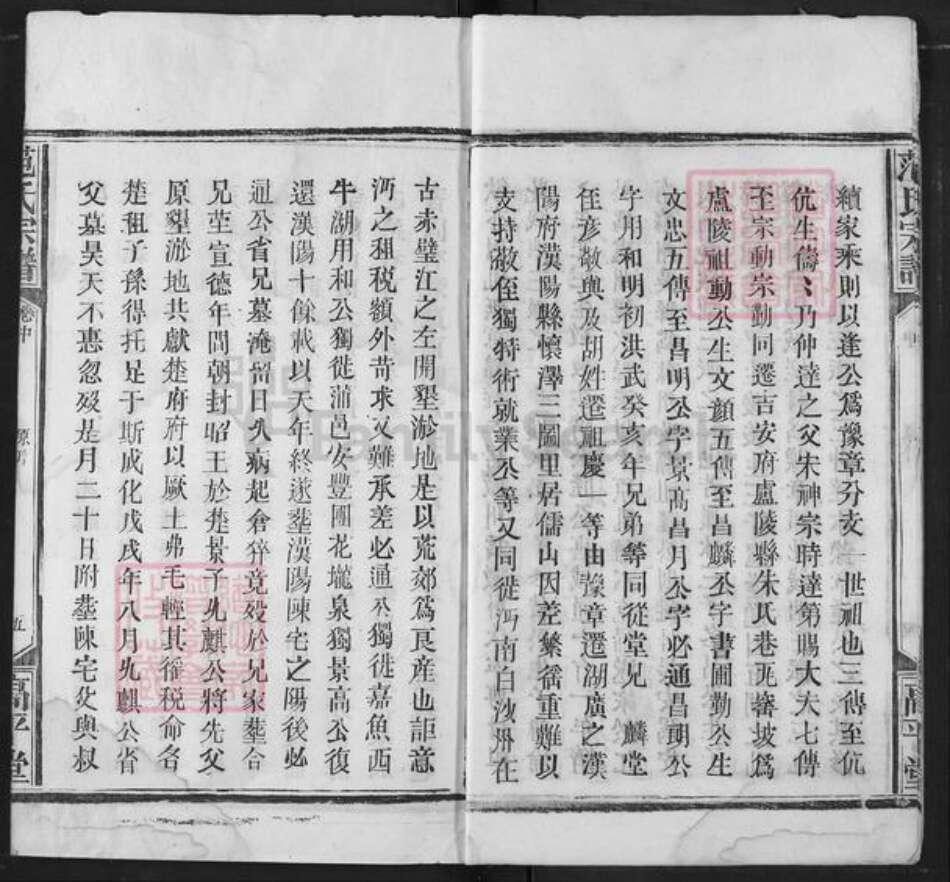 范氏宗譜
高平堂
續家乘則以逢公爲豫章分支一世祖也三傳至伉
伉生儔儔乃仲達之父朱神宗時達第賜大夫七傳
至宗動宗勤同遷吉安府盧陵縣朱氏巷瓦磘坡爲
盧陵祖動公生文顔五傳至昌麟公字書圃勤公生
文忠五傳至昌明公字景高昌月公字必通昌朗公
字用和明初洪武癸亥年兄弟等同從堂兄 麟堂
侄彥敬興及胡姓遷祖慶一等由豫章遷湖廣之漢
陽府漢陽縣懷澤三圖里居儒山因差繁徭重難以
支持敬侄獨特術就業公等又同徙沔南白沙洲在
古赤壁江之左開墾淤地是以荒郊爲良產也詎意
沔之租税額外苛求又難承差必通公獨徙嘉魚西
牛湖用和公獨徙蒲邑安豐團花壠泉獨景高公復
還漢陽十餘載以天年終遂塟漢陽陳宅之陽後必
通公省兄墓淹留日久病起倉猝竟殁於兄家塟合
兄茔宣德年間朝封昭王於楚景子九麒公將先父
原墾淤地共獻楚府府以厥土弗毛輕其徭税命名
楚租子孫得托足于斯成化戊戌年八月九麒公省
父墓昊天不惠忽殁是月二十日附塟陳宅父與叔
范氏宗譜
卷中
源明
五
高平堂
FamilySearch